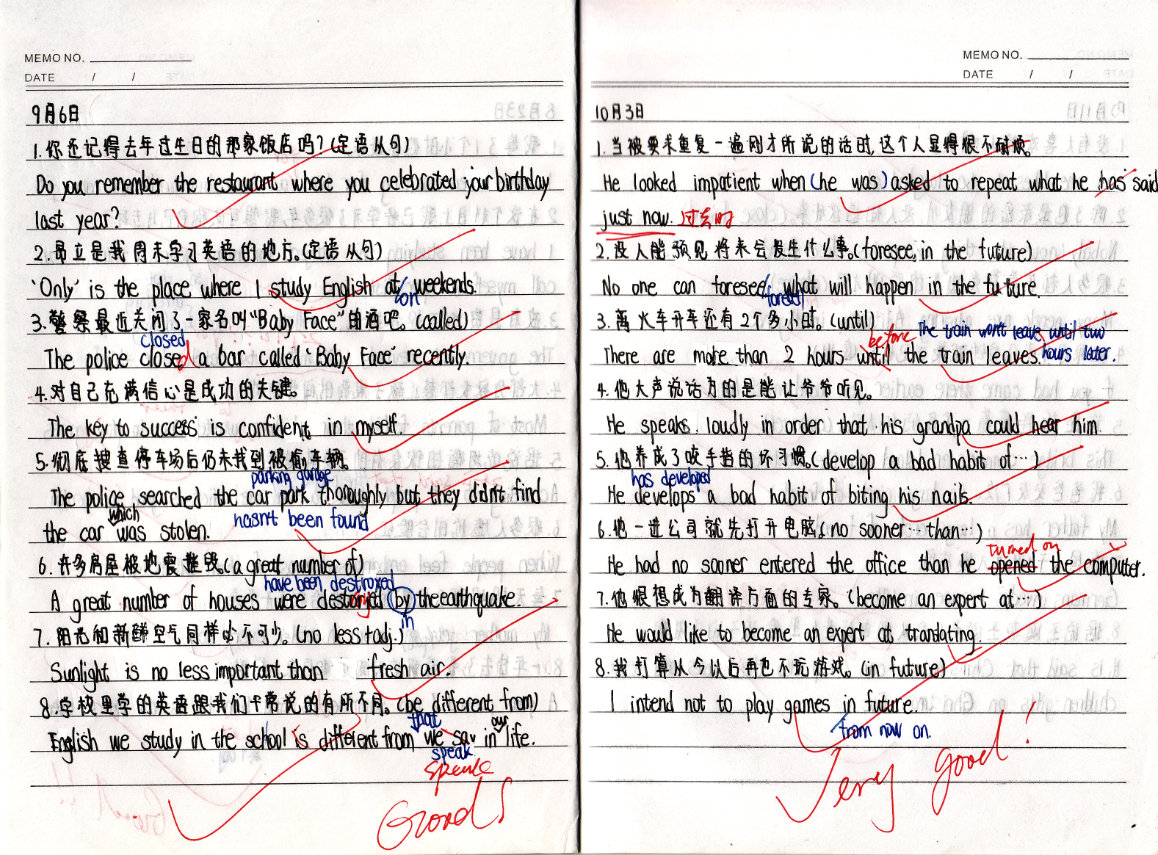 MEMO NO.
DATE / /
9月6日
1.你还记得去年过生日的那家饭店吗?(定语从句)
Do you remember the restaurant where you celebrated your birthday
last year?
2.昂立是我周末学习英语的地方。(定语从句)
'Only' is the place where I study English at weekends.
on
3.警察最近关闭了一家名叫“Baby Face”的酒吧。(called)
closed
The police closed a bar called 'Baby Face' recently.
4.对自己充满信心是成功的关键。
The key to success is confident in myself.
5.彻底搜查停车场后仍未找到被偷车辆。
parking garage
The police searched the car park thoroughly but they didn't find
which
the car was stolen. hasn't been found
6.许多房屋被地震摧毁。(a great number of)
have been destroyed
A great number of houses were destroyed by the earthquake.
in
7.阳光和新鲜空气同样必不可少。(no less+adj.)
Sunlight is no less important than fresh air.
8.学校里学的英语跟我们平常说的有所不同。(be different from)
that our
English we study in the school is different from we say in life.
speak
speak
Good
MEMO NO.
DATE / /
10月3日
1.当被要求重复一遍刚才所说的话时,这个人显得很不耐烦。
He looked impatient when (he was) asked to repeat what he has said
just now. 过去时
2.没人能预见将来会发生什么事。(foresee, in the future)
No one can foresee what will happen in the future.
foretell
3.离火车开车还有2个多小时。(until)
before The train won't leave until two
There are more than 2 hours until the train leaves. hours later.
4.他大声说话为的是能让爷爷听见。
He speaks loudly in order that his grandpa could hear him.
5.他养成了咬手指的坏习惯。(develop a bad habit of…)
has developed
He develops a bad habit of biting his nails.
6.他一进公司就先打开电脑。(no sooner…than…)
turned on
He had no sooner entered the office than he opened the computer.
7.他很想成为翻译方面的专家。(become an expert at…)
He would like to become an expert at translating.
8.我打算从今以后再也不玩游戏。(in future)
I intend not to play games in future.
from now on.
Very good!